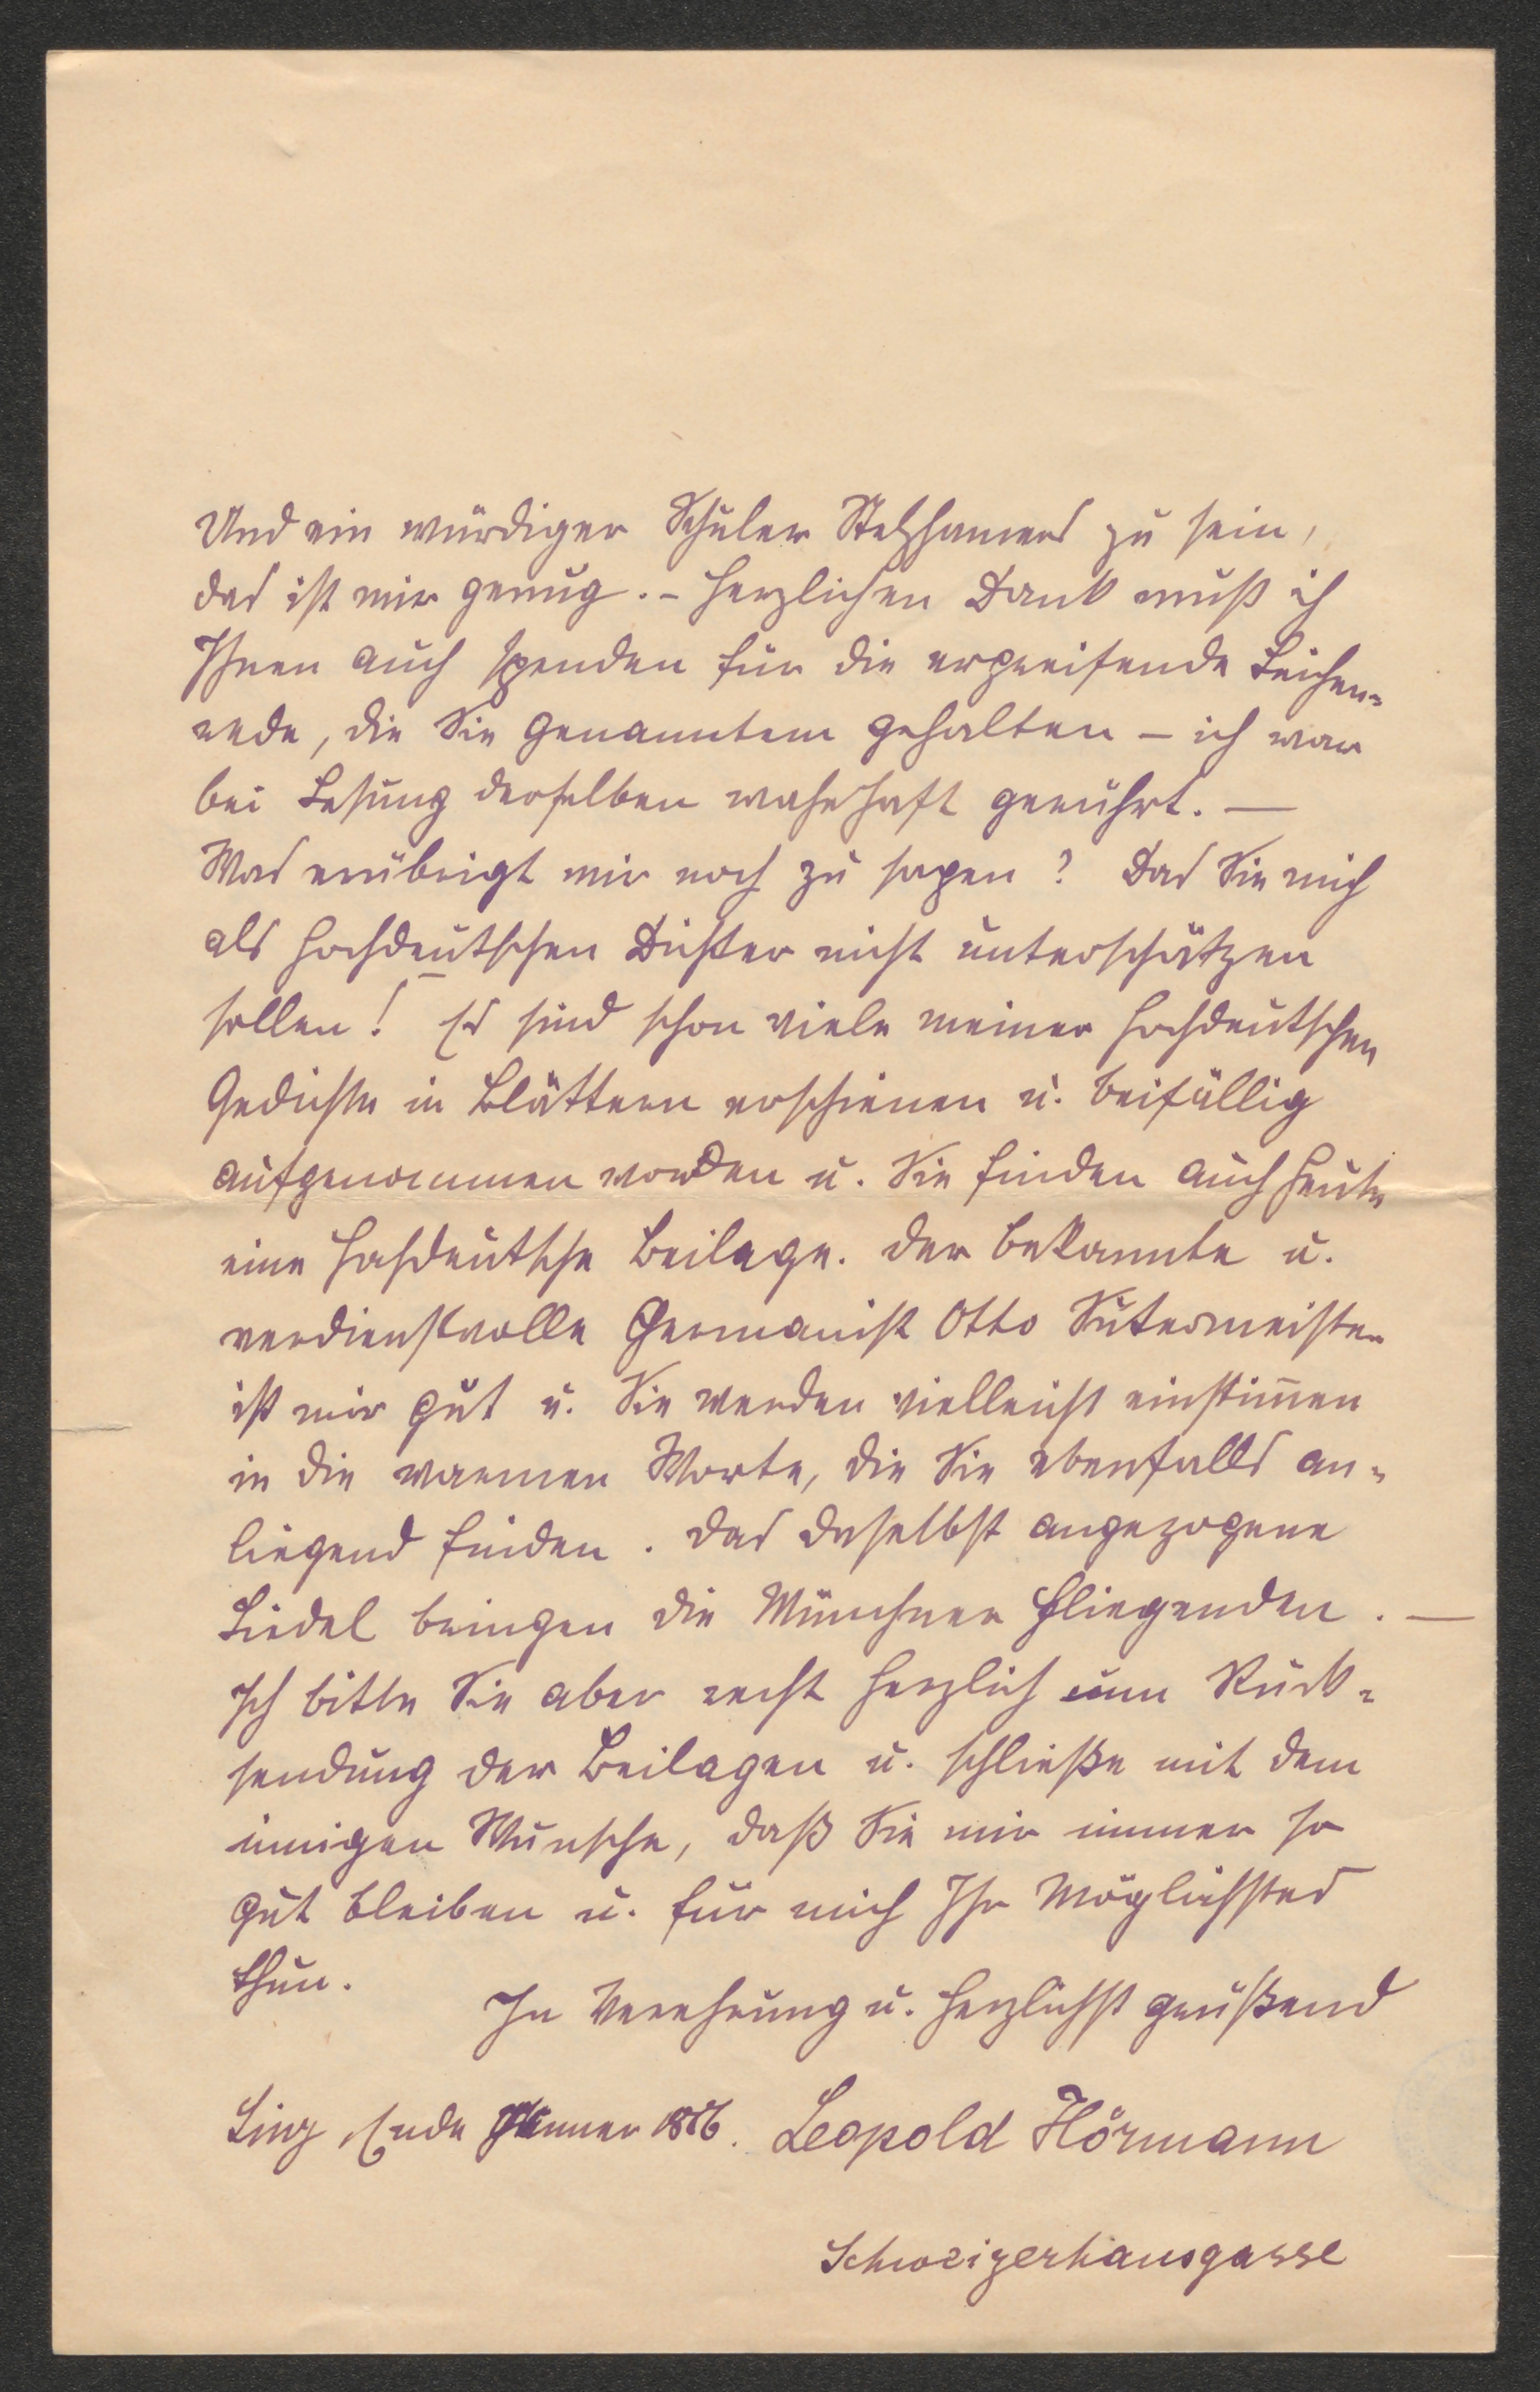 Und ein würdiger Schüler Stelzhamers zu sein,
das ist mir genug. – Herzlichen Dank muß ich
Ihnen auch spenden für die ergreifende Leichen-
rede, die Sie Genanntem gehalten – ich war
bei Lesung derselben wahrhaft gerührt. —
Was erübrigt mir noch zu sagen? Das Sie mich
als hochdeutschen Dichter nicht unterschätzen
sollen! Es sind schon viele meiner hochdeutschen
Gedichte in Blättern erschienen u. beifällig
aufgenommen worden u. Sie finden auch heute
eine hochdeutsche Beilage. Der bekannte u.
verdienstvolle Germanist Otto Sutermeister
ist mir gut u. Sie werden vielleicht einstim̄en
in die warmen Worte, die Sie ebenfalls an-
liegend finden. Das daselbst angezogene
Liedel bringen die Münchner Fliegenden. —
Ich bitte Sie aber recht herzlich um Rück-
sendung der Beilagen u. schließe mit dem
innigen Wunsche, daß Sie mir immer so
gut bleiben u. für mich Ihr Möglichstes
thun.
In Verehrung u. herzlichst grüßend
Linz, Ende Jänner 1876. Leopold Hörmann
Schweizerhausgasse